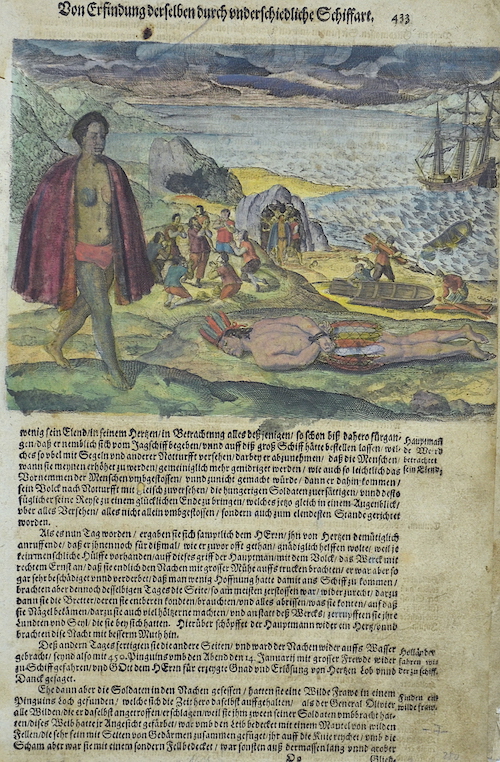 Von Erfindung derselben durch vnderschiedliche Schiffart. 433
wenig sein Elend/in seinem Hertzen/in Betrachtung alles deßjenigen/so schon biß dahero fürgan-
gen/daß er nemblich sich vom Jagschiff begeben/vnnd auff diß groß Schiff hätte bestellen lassen/wel-
ches so vbel mit Segeln vnd anderer Notturfft versehen/darbey er abzunehmen/daß die Menschen/
wann sie meynen erhöhet zu werden/gemeiniglich mehr genidriget werden/wie auch so leichtlich das
Vornemmen der Menschen vmbgestossen/vnnd zunicht gemacht würde/dann er dahin kommen/
sein Volck nach Notturfft mit Fleisch zu versehen/die hungerigen Soldaten zuersättigen/vnnd desto
füglicher seine Reyse zu einem glücklichen End zu bringen/welches jetzo gleich in einem Augenblick/
vber alles Versehen/alles nicht allein vmbgestossen/sondern auch zum elendesten Stande gerichtet
worden.
Hauptmañ
betrachtet
sein Elend.
Als es nun Tag worden/ergaben sie sich sämptlich dem HErrn/jhn von Hertzen demütiglich
anruffende/daß er jhnen noch für dißmal/wie er zuvor offt gethan/gnädiglich helffen wolte/weil je
kein menschliche Hülffe vorhanden/auff dieses griff der Hauptmann mit dem Volck/das Werck mit
rechtem Ernst an/daß sie endlich den Nachen mit grosser Mühe auffs trucken brachten/er war aber so
gar sehr beschädiget vnnd verderbet/daß man wenig Hoffnung hatte damit ans Schiff zu kommen/
brachten aber dennoch desselbigen Tages die Seite/so am meisten zerstossen war/wider zurecht/dar zu
dann sie die Bretter/deren sie entberen konten/brauchten/vnd alles abrissen/was sie konten/auff daß
sie Nägel bekämen/darzu sie auch viel höltzerne machten/vnd an statt deß Wercks/zerrupfften sie jhre
Lundten vnd Seyl/die sie bey sich hatten. Hierüber schöpffet der Hauptmann wider ein Hertz/vnnd
brachten dise Nacht mit besserm Muth hin.
Deß andern Tages fertigten sie die andere Seiten/vnd ward der Nachen wider auffs Wasser
gebracht/seynd also mit 450. Pinguins vmb den Abend den 14. Januarij mit grosser Frewde wider
zu Schiff gefahren/vnd GOtt dem HErrn für erzeygte Gnad vnd Erlösung von Hertzen Lob vnnd
Danck gesaget.
Holländer
fahren wider
zu schiff.
Ehe dann aber die Soldaten in den Nachen gesessen/hatten sie eine Wilde Fraw in einem
Pinguins Loch gefunden/welche sich die Zeit hero daselbst auffgehalten/als der General Olivier
alle Wilden/die er daselbst angetroffen/erschlagen/weil sie jhm zween seiner Soldaten vmbbracht hat-
ten/dises Weib hatte jr Angesicht geferbet/war vmb den Leib bedecket mit einem Mantel von wilden
Fellen/die sehr fein mit Seiten von Gedärmen zusammen gefüget/jhr auff die Knie reychet/vmb die
Scham aber war sie mit einem sondern Fell bedecket/war sonsten auß dermassen lang vnd grober
Finden ein
wilde fraw.
Glied-